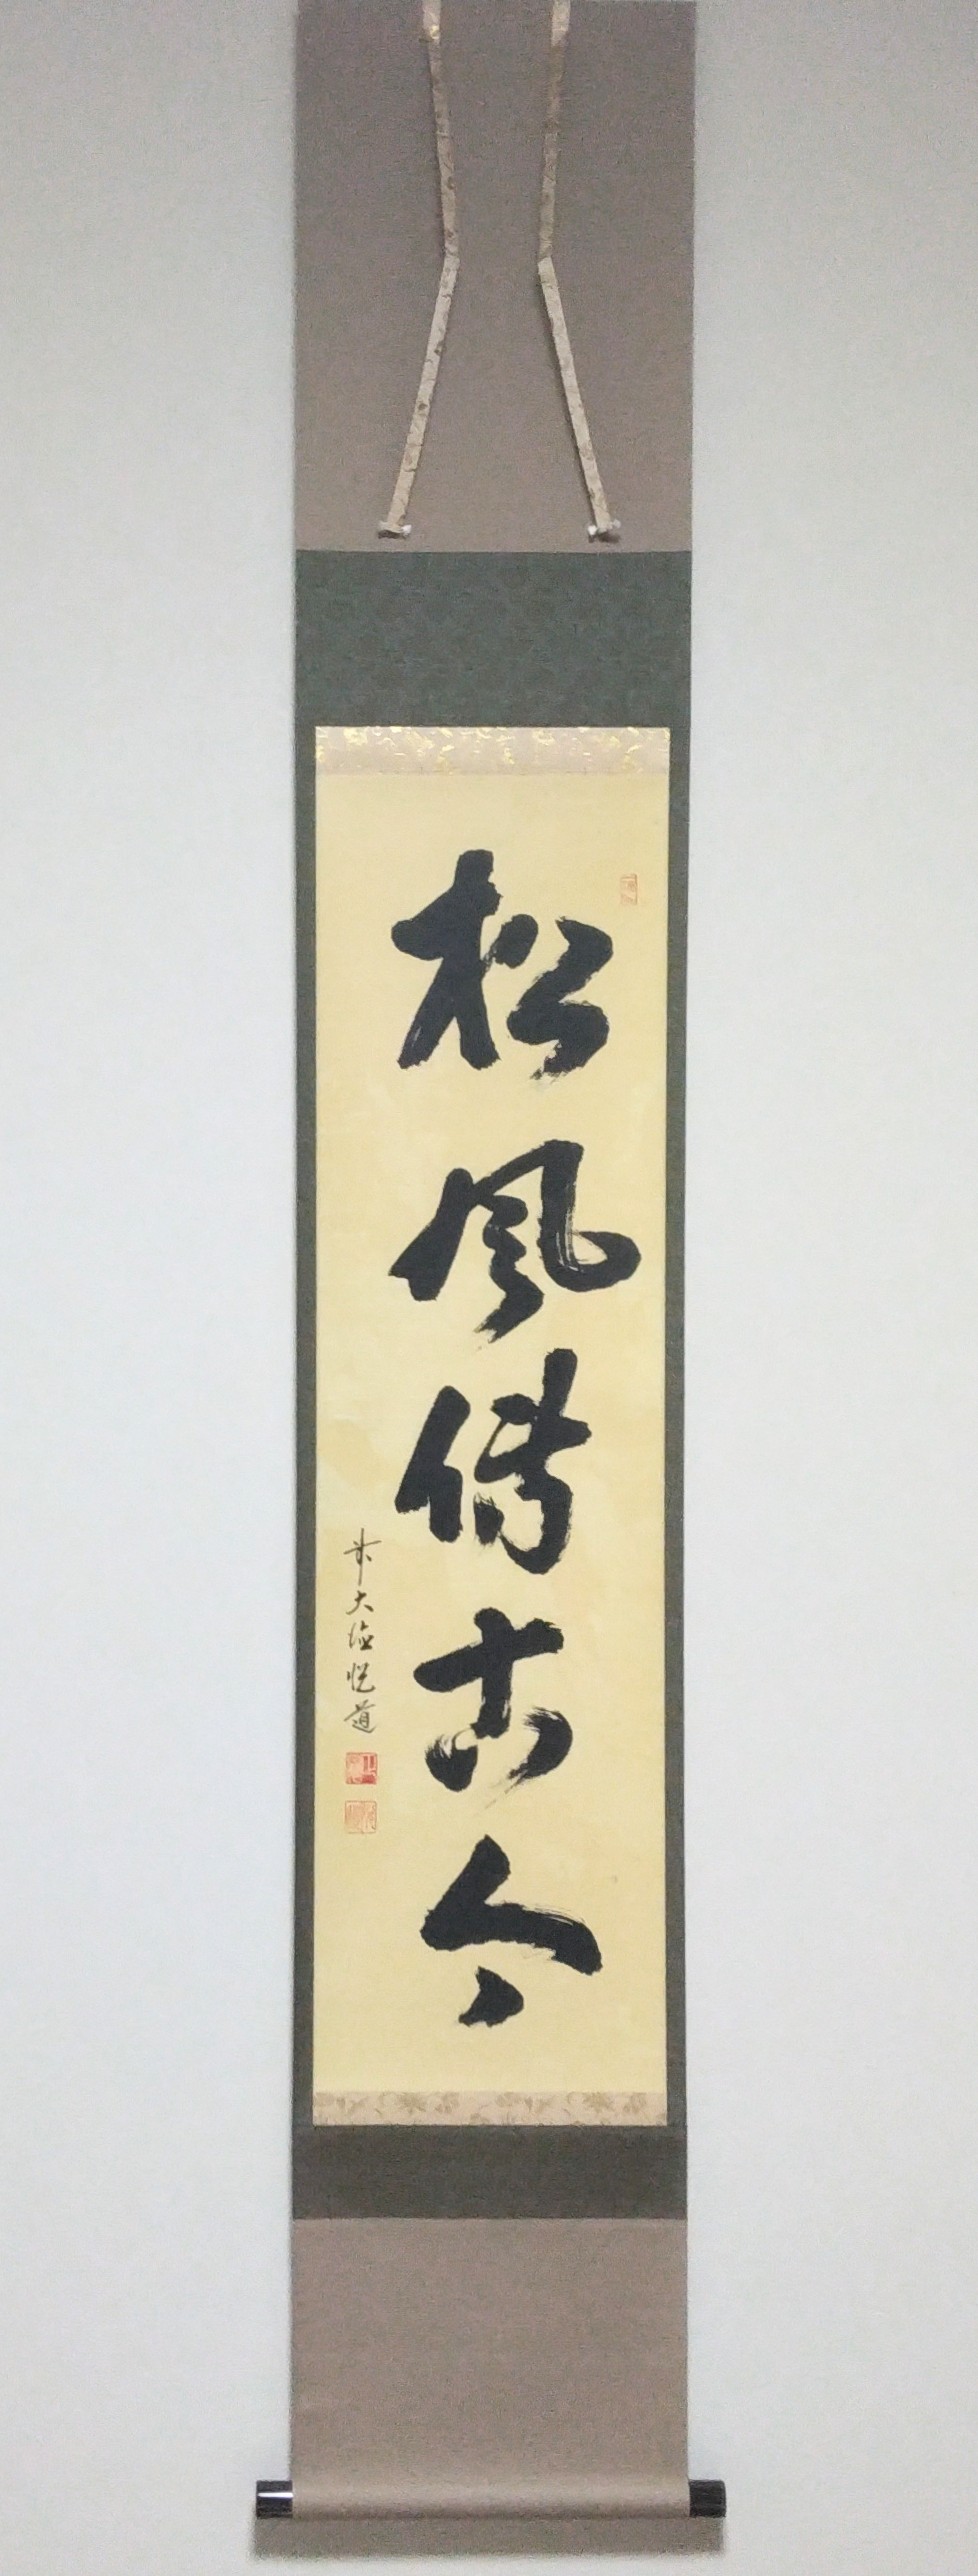 松風傳古今
前大徳悦道